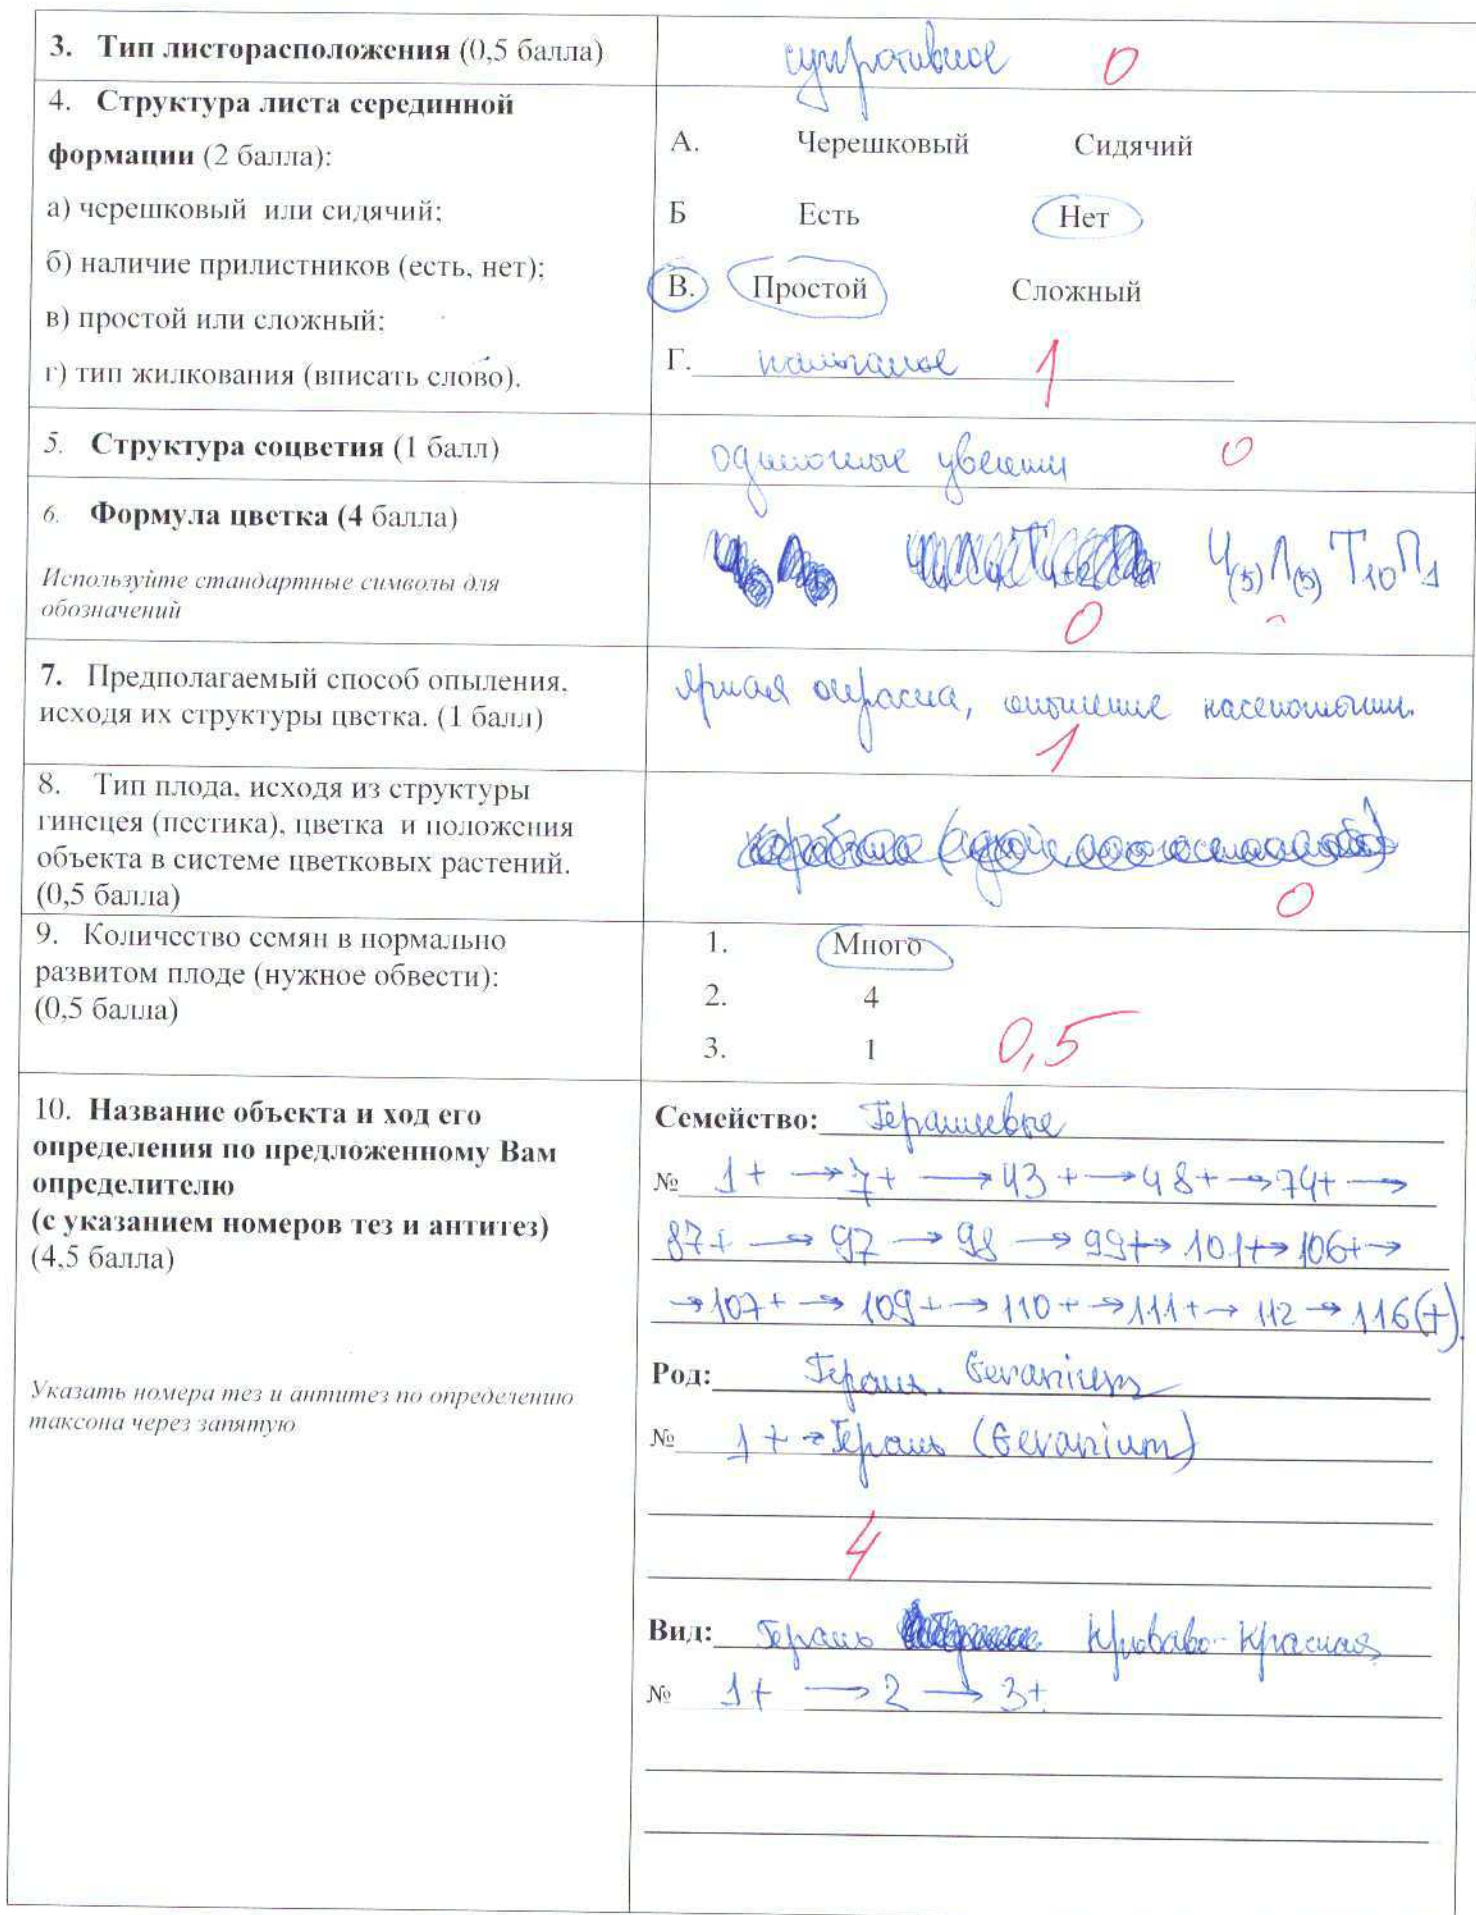 3. Тип листорасположения (0,5 балла)
супротивное 0
4. Структура листа серединной
формации (2 балла):
а) черешковый или сидячий;
б) наличие прилистников (есть, нет);
в) простой или сложный;
г) тип жилкования (вписать слово).
А. Черешковый Сидячий
Б Есть Нет
В. Простой Сложный
Г. пальчатое 1
5. Структура соцветия (1 балл)
одиночные цветки 0
6. Формула цветка (4 балла)
Используйте стандартные символы для
обозначений
Ч(5)Л(5)Т10П1
0
7. Предполагаемый способ опыления,
исходя их структуры цветка. (1 балл)
яркая окраска, опыление насекомыми.
1
8. Тип плода, исходя из структуры
гинецея (пестика), цветка и положения
объекта в системе цветковых растений.
(0,5 балла)
0
9. Количество семян в нормально
развитом плоде (нужное обвести):
(0,5 балла)
1. Много
2. 4
3. 1 0,5
10. Название объекта и ход его
определения по предложенному Вам
определителю
(с указанием номеров тез и антитез)
(4,5 балла)
Указать номера тез и антитез по определению
таксона через запятую
Семейство: Гераниевые
№ 1+ → 7+ → 43+ → 48+ → 74+ →
87+ → 97 → 98 → 99+ → 101+ → 106+ →
→ 107+ → 109+ → 110+ → 111+ → 112 → 116(+).
Род: Герань. Geranium
№ 1+ → Герань (Geranium)
4
Вид: Герань Кроваво-Красная
№ 1+ → 2 → 3+.